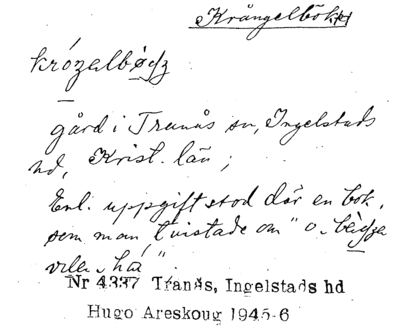 Krångelbok
krózalbǫ̀ʒz
gård i Tranås sn, Ingelstads
hd, Krist. län;
Enl. uppgift stod där en bok,
som man tvistade om "o
ville ha"
Nr 4337 Tranås, Ingelstads hd
Hugo Areskoug 1945-6